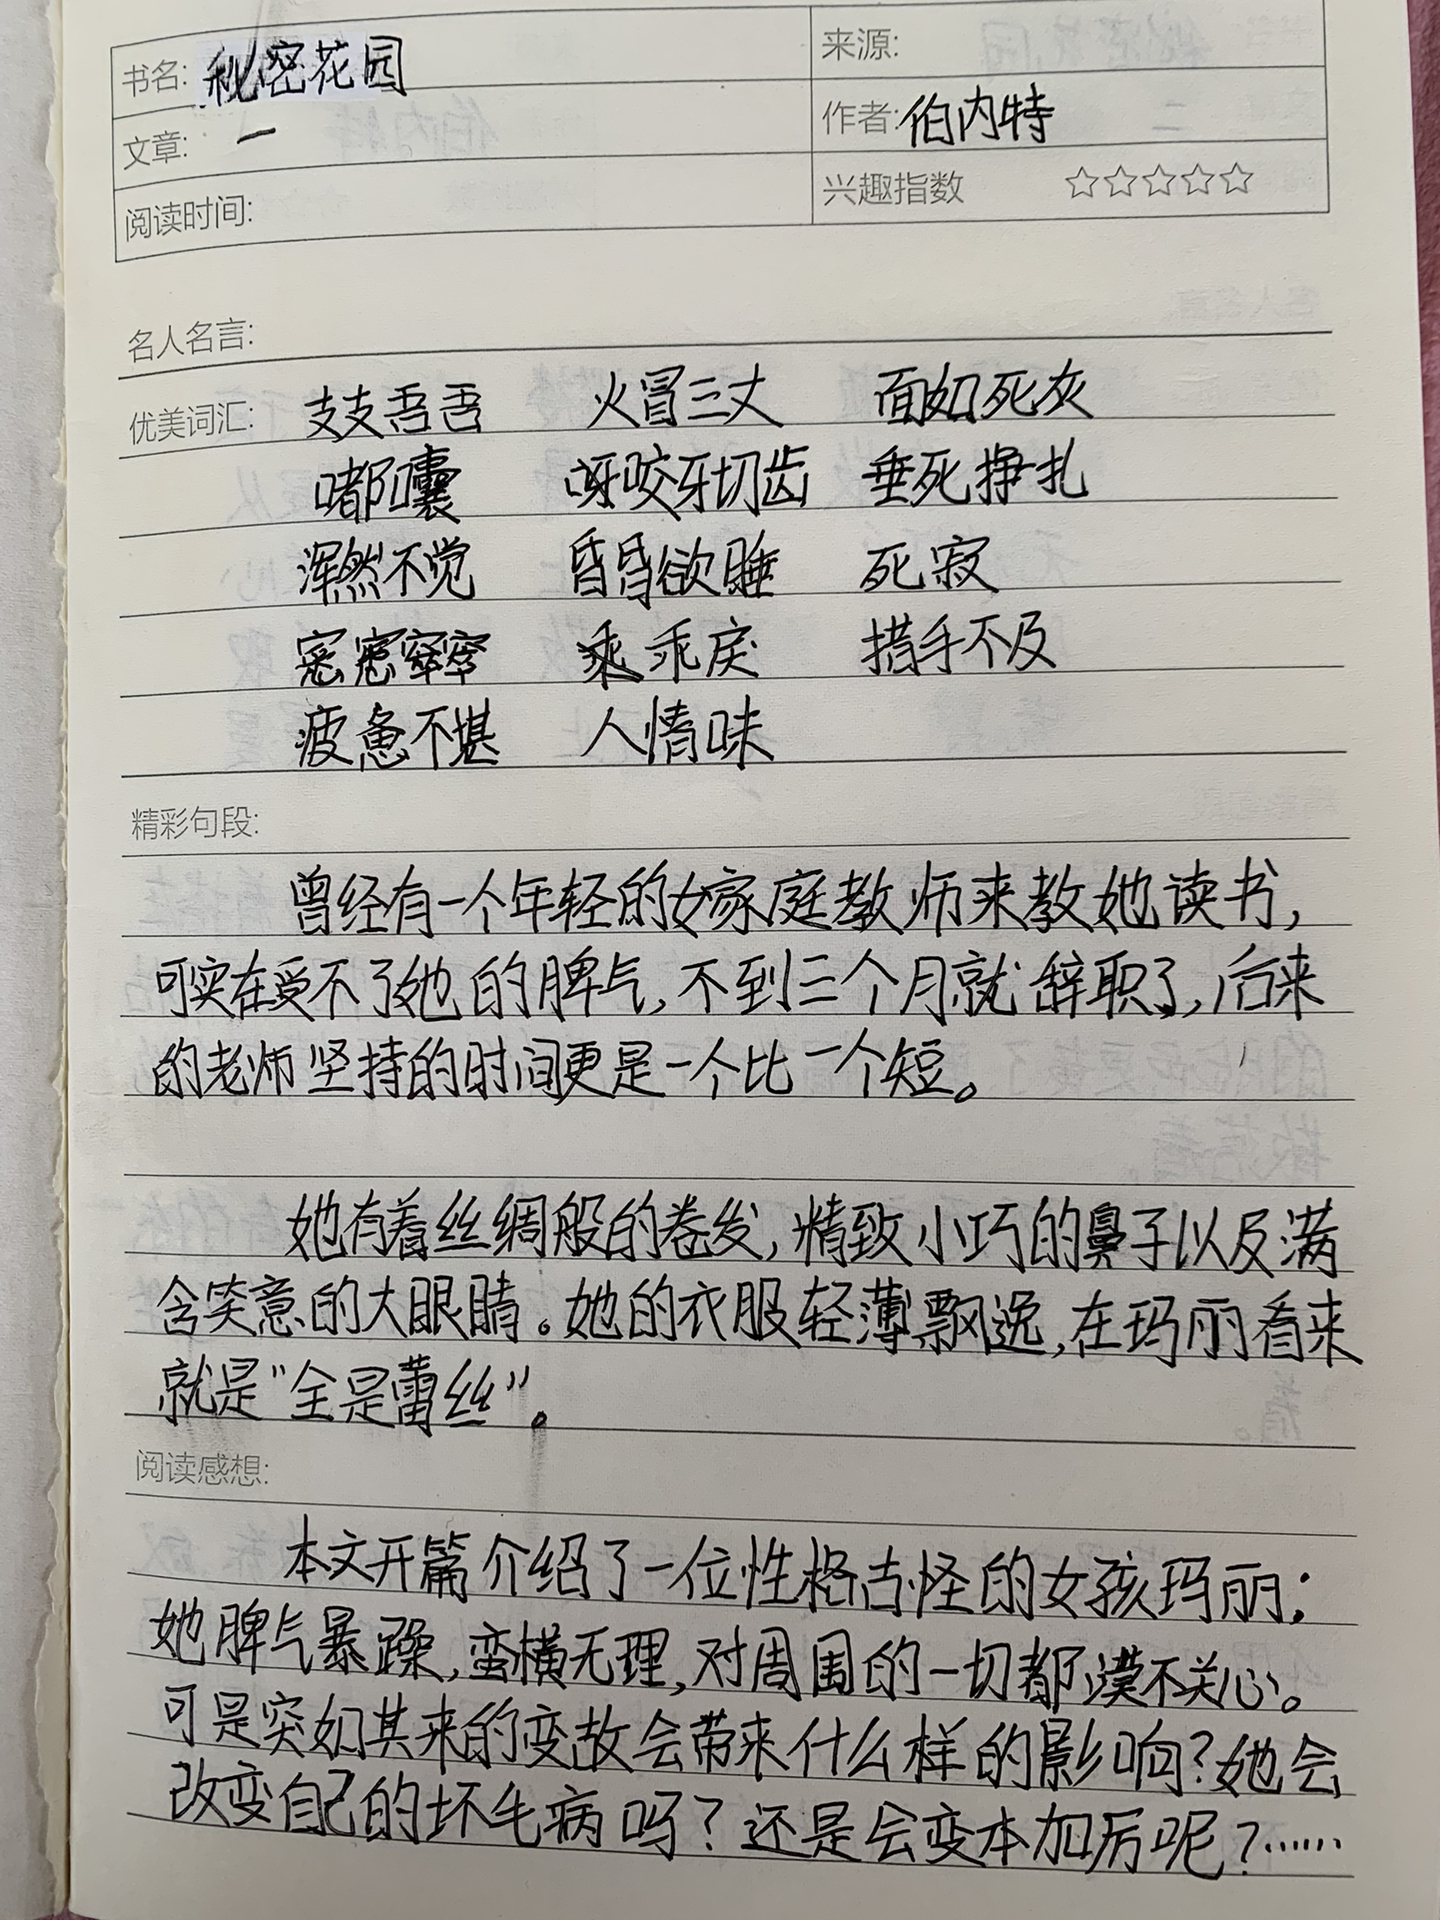 书名: 秘密花园
来源:
文章: 一
作者: 伯内特
阅读时间:
兴趣指数 ☆☆☆☆☆
名人名言:
优美词汇: 支支吾吾 火冒三丈 面如死灰
嘟囔 咬牙切齿 垂死挣扎
浑然不觉 昏昏欲睡 死寂
窸窸窣窣 乖戾 措手不及
疲惫不堪 人情味
精彩句段:
曾经有一个年轻的女家庭教师来教她读书,
可实在受不了她的脾气,不到三个月就辞职了,后来
的老师坚持的时间更是一个比一个短。
她有着丝绸般的卷发,精致小巧的鼻子以及满
含笑意的大眼睛。她的衣服轻薄飘逸,在玛丽看来
就是“全是蕾丝”。
阅读感想:
本文开篇介绍了一位性格古怪的女孩玛丽:
她脾气暴躁,蛮横无理,对周围的一切都漠不关心。
可是突如其来的变故会带来什么样的影响?她会
改变自己的坏毛病吗?还是会变本加厉呢?……